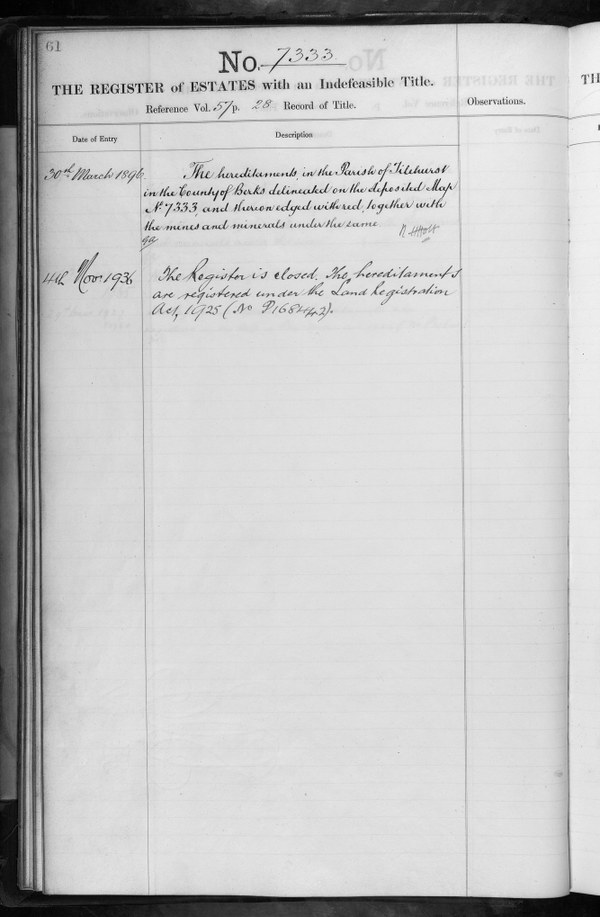 61
No. 7333
THE REGISTER of ESTATES with an Indefeasible Title.
Reference Vol. 57 p. 28 Record of Title.
Observations.
Date of Entry
Description
30th March 1896.
The hereditaments, in the Parish of Tilehurst
in the County of Berks delineated on the deposited Map
No. 7333, and thereon edged with red, together with
the mines and minerals under the same
4th Nov. 1936
The Register is closed. The hereditaments
are registered under the Land Registration
Act, 1925 (No P168442).
TH